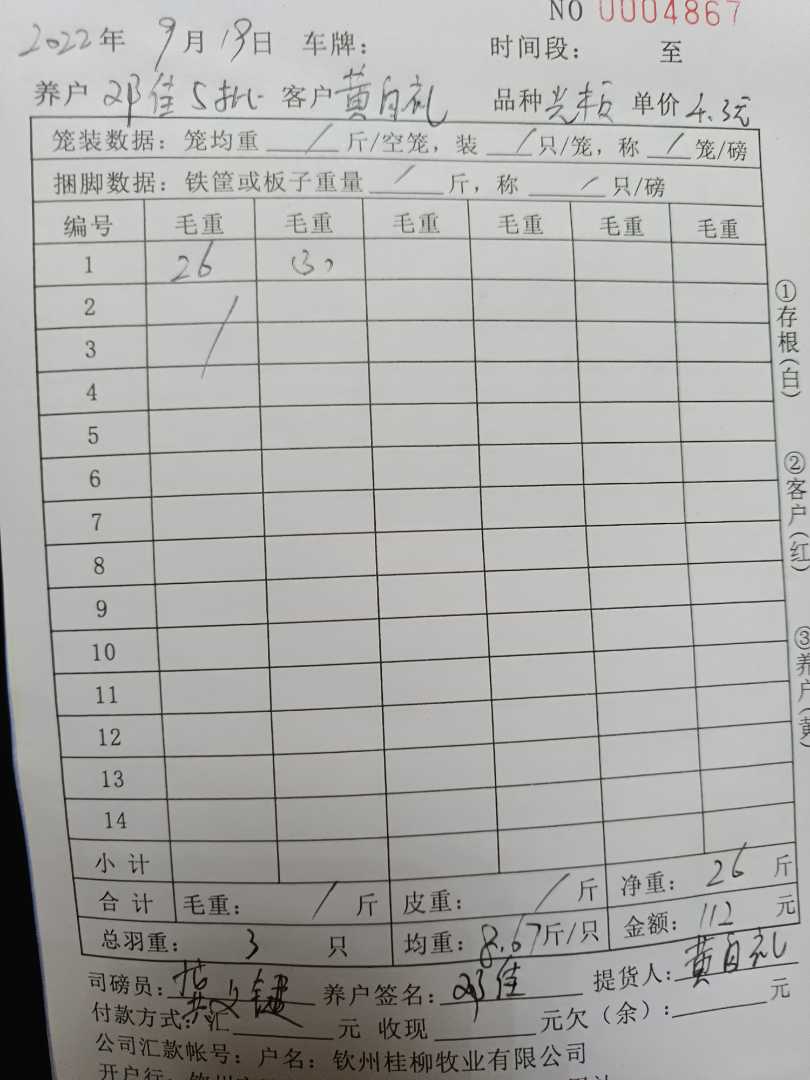 NO 0004867
2022年 9月19日 车牌： 时间段： 至
养户 邓佳5批 客户 黄自礼 品种 单价 4.3元
笼装数据：笼均重 / 斤/空笼，装 / 只/笼，称 / 笼/磅
捆脚数据：铁筐或板子重量 / 斤，称 / 只/磅
编号 毛重 毛重 毛重 毛重 毛重 毛重
1 26 (3)
2
3
4
5
6
7
8
9
10
11
12
13
14
小计
合计 毛重： / 斤 皮重： / 斤 净重： 26 斤
总羽重： 3 只 均重：8.67斤/只 金额： 112 元
司磅员： 养户签名：邓佳 提货人：黄自礼
付款方式：汇 元 收现 元欠（余）： 元
公司汇款帐号：户名：钦州桂柳牧业有限公司
①存根(白)
②客户(红)
③养户(黄